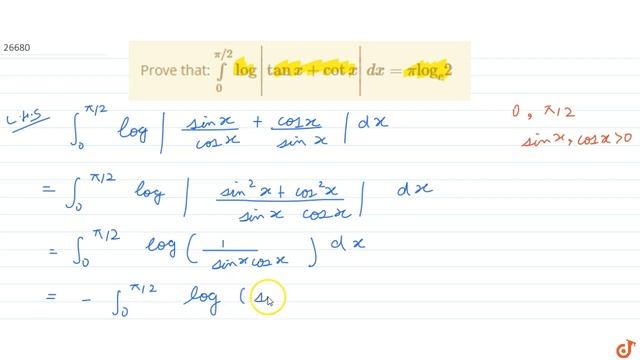 26680
Prove that: ∫₀^{π/2} log |tan x + cot x| dx = π logₑ 2
L.H.S ∫₀^{π/2} log | sin x / cos x + cos x / sin x | dx
0, π/2
sin x, cos x > 0
= ∫₀^{π/2} log | sin² x + cos² x / sin x cos x | dx
= ∫₀^{π/2} log ( 1 / sin x cos x ) dx
= - ∫₀^{π/2} log ( s